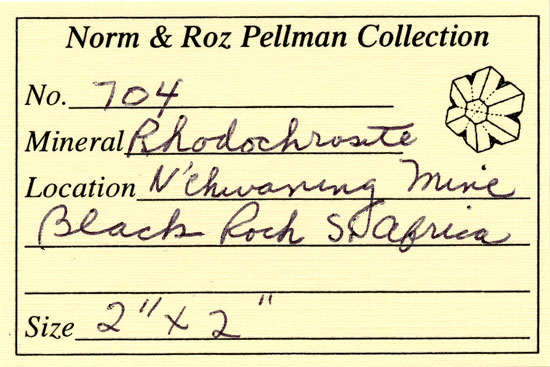 Norm & Roz Pellman Collection
No. 704
Mineral Rhodochrosite
Location N'Chwaning Mine
Black Rock S. Africa
Size 2" x 2"